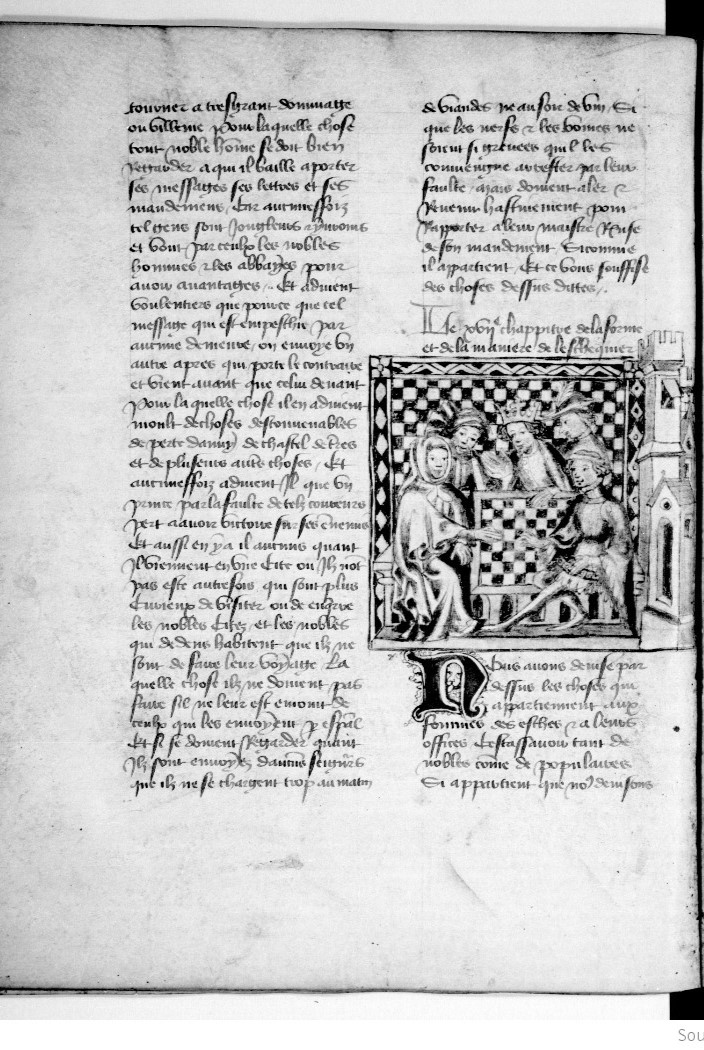 tourner a tresgrant dommage
ou villenie Pour laquelle chose
tout noble home se doit bien
Regarder a qui il baille a porter
ses messages ses lettres et ses
mandemens, Car aucuneffoiz
telz gens sont Jongleurs
et vont par ceulx les nobles
hommes & les abbayes pour
avoir avantages. Et advient
voulentiers que pource que cel
message qui est empeschie par
aucune demeure, on envoye vn
autre apres qui porte le contraire
et vient avant que celui devant
Pour la quelle chose il en advient
moult de choses desconvenables
de perte damis de chastel de tres
et de plusieurs autres choses, Et
aucuneffoiz advient Il que vn
prince par la faulte de telz coureurs
pert a avoir victoire sur ses enemis
Et aussi en y a il aucuns quant
Il viennent en vne Cite ou Ilz nōt
pas este autrefois qui sont plus
Curieux de visiter ou de enqrre
les nobles Citez et les nobles
qui dedens habitent que ilz ne
sont de faire leur voyage La
quelle chose ilz ne doivent pas
faire sil ne leur est enioint de
ceulx qui les envoyent p espāl
Et si se doivent Regarder quant
Ilz sont envoyez daucuns seignrs
que ilz ne se chargent trop au matin
de viandes ne au soir de vin, Si
que les nerfs & les voines ne
soient si grevees quil les
conviengne arrester par leur
faulte, Mais doivent aler &
Revenir hastivement pour
Rapporter a leur maistre Rense
de son mandement, Si comme
il appartient, Et ce vous souffise
des choses dessus dittes.
Le xviie chappitre de la forme
et de la maniere de leschequier
Nous avons devise par
dessus les choses qui
appartiennent aux
fourmes des esches & a leurs
offices Cest assavoir tant de
nobles cōme de populaires
Si appartient que no9 devisons